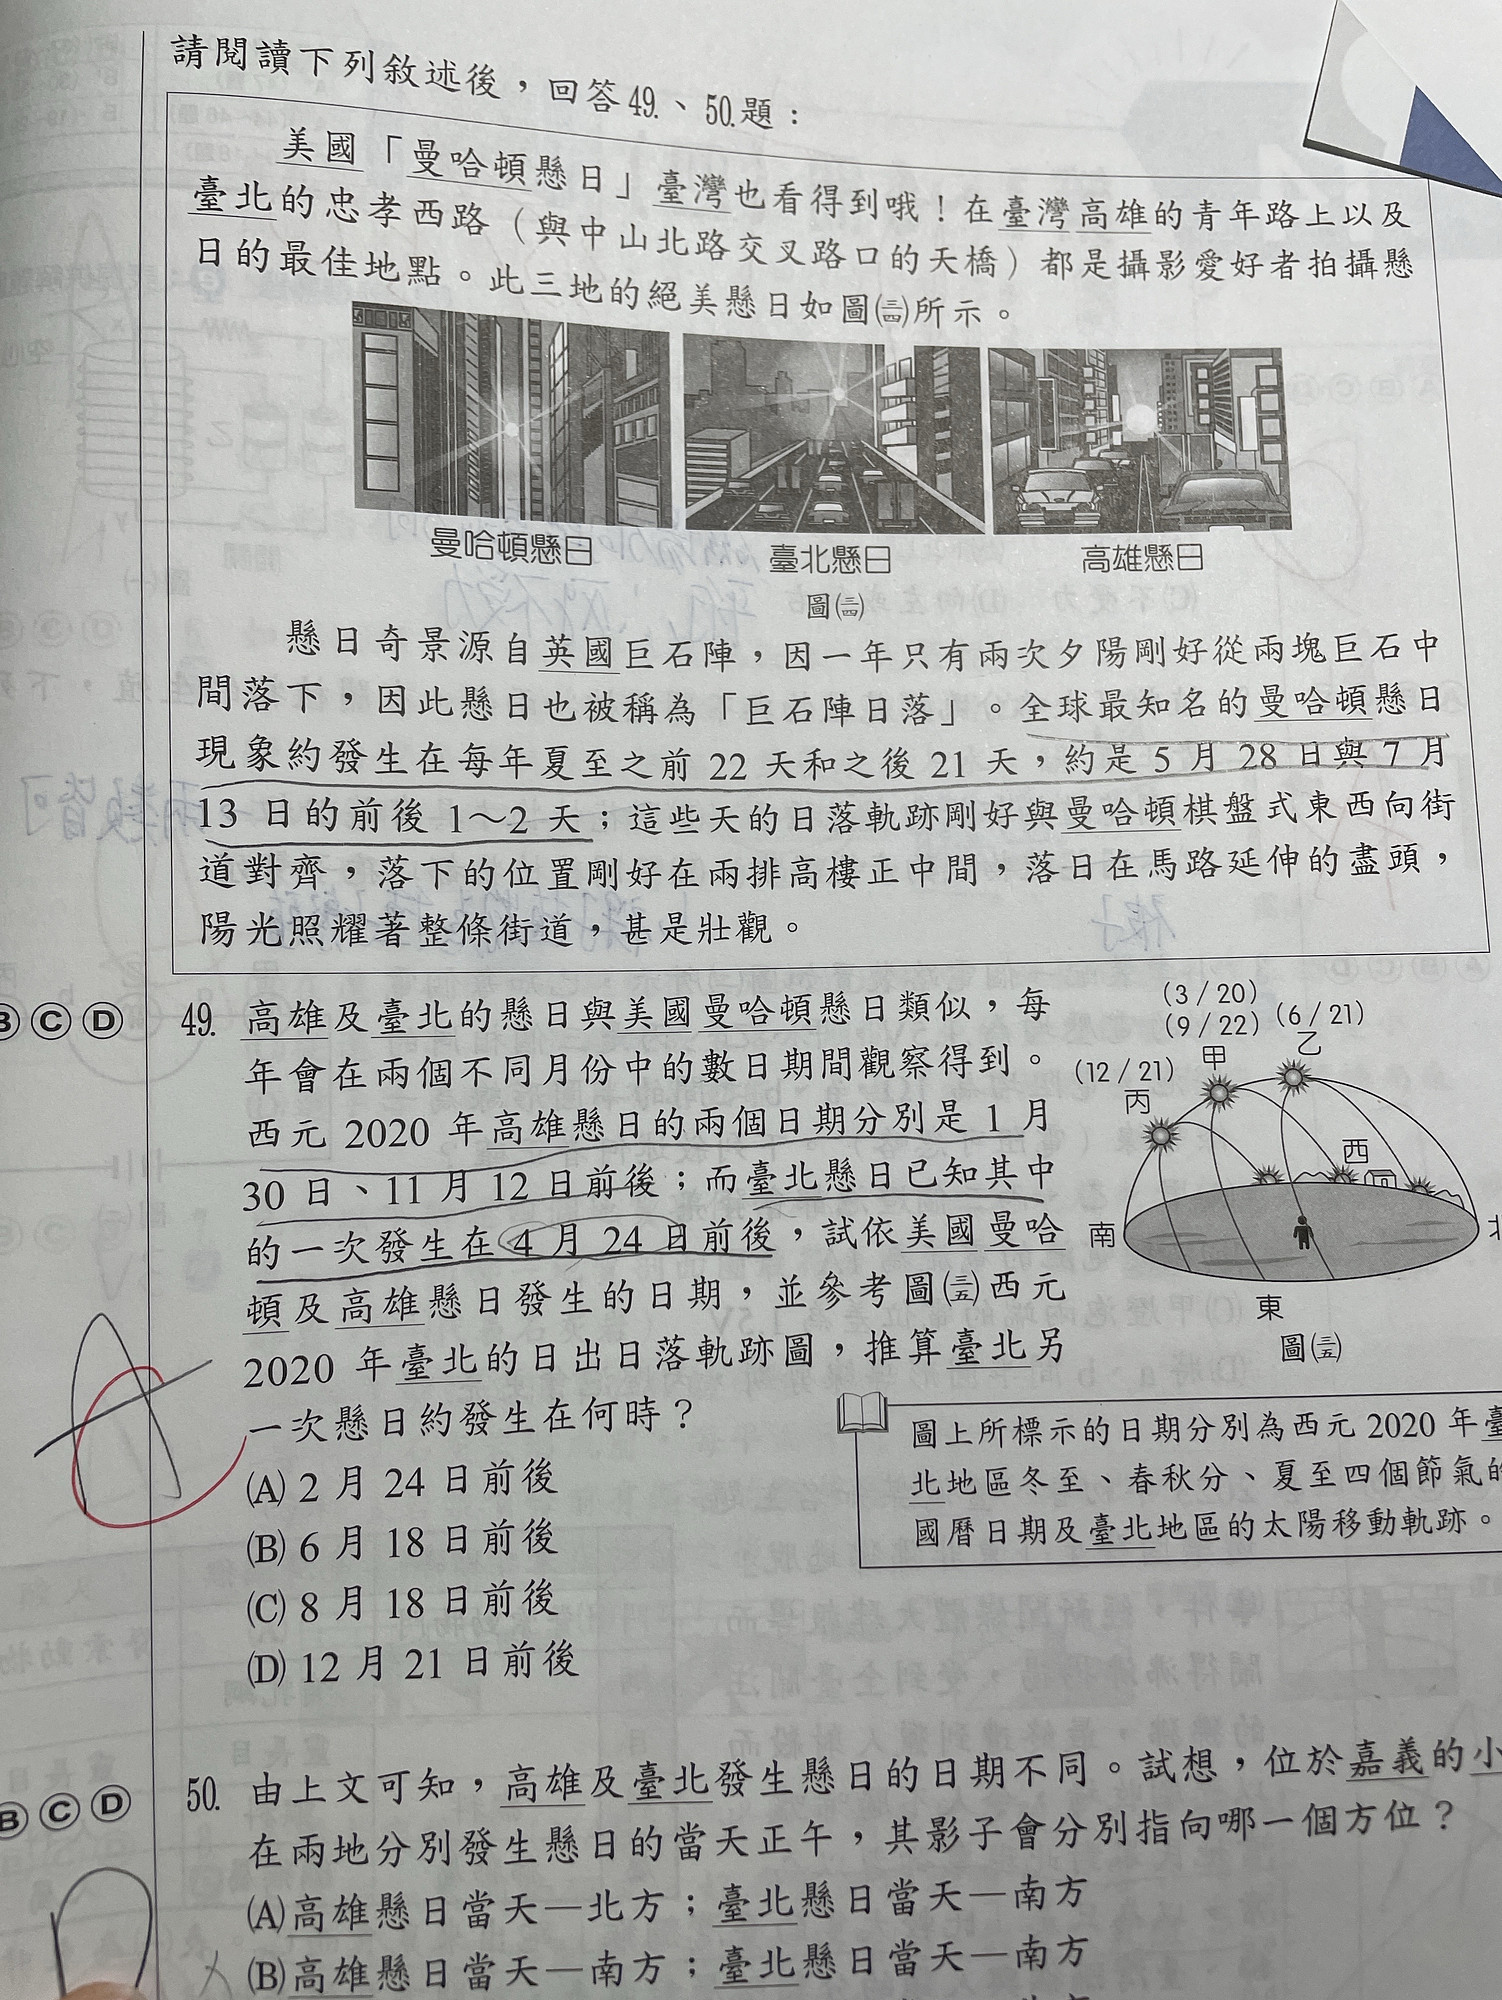 請閱讀下列敘述後，回答49.、50.題：
美國「曼哈頓懸日」臺灣也看得到哦！在臺灣高雄的青年路上以及
臺北的忠孝西路（與中山北路交叉路口的天橋）都是攝影愛好者拍攝懸
日的最佳地點。此三地的絕美懸日如圖(三四)所示。
曼哈頓懸日
臺北懸日
高雄懸日
圖(三四)
懸日奇景源自英國巨石陣，因一年只有兩次夕陽剛好從兩塊巨石中
間落下，因此懸日也被稱為「巨石陣日落」。全球最知名的曼哈頓懸日
現象約發生在每年夏至之前 22 天和之後 21 天，約是 5 月 28 日與 7 月
13 日的前後 1～2 天；這些天的日落軌跡剛好與曼哈頓棋盤式東西向街
道對齊，落下的位置剛好在兩排高樓正中間，落日在馬路延伸的盡頭，
陽光照耀著整條街道，甚是壯觀。
B C D
49. 高雄及臺北的懸日與美國曼哈頓懸日類似，每
年會在兩個不同月份中的數日期間觀察得到。
西元 2020 年高雄懸日的兩個日期分別是 1 月
30 日、11 月 12 日前後；而臺北懸日已知其中
的一次發生在 4 月 24 日前後，試依美國曼哈
頓及高雄懸日發生的日期，並參考圖(三五)西元
2020 年臺北的日出日落軌跡圖，推算臺北另
一次懸日約發生在何時？
(A) 2 月 24 日前後
(B) 6 月 18 日前後
(C) 8 月 18 日前後
(D) 12 月 21 日前後
(3／20)
(9／22)
甲
(6／21)
乙
(12／21)
丙
西
南
北
東
圖(三五)
圖上所標示的日期分別為西元 2020 年臺
北地區冬至、春秋分、夏至四個節氣的
國曆日期及臺北地區的太陽移動軌跡。
B C D
50. 由上文可知，高雄及臺北發生懸日的日期不同。試想，位於嘉義的小
在兩地分別發生懸日的當天正午，其影子會分別指向哪一個方位？
(A) 高雄懸日當天—北方；臺北懸日當天—南方
(B) 高雄懸日當天—南方；臺北懸日當天—南方